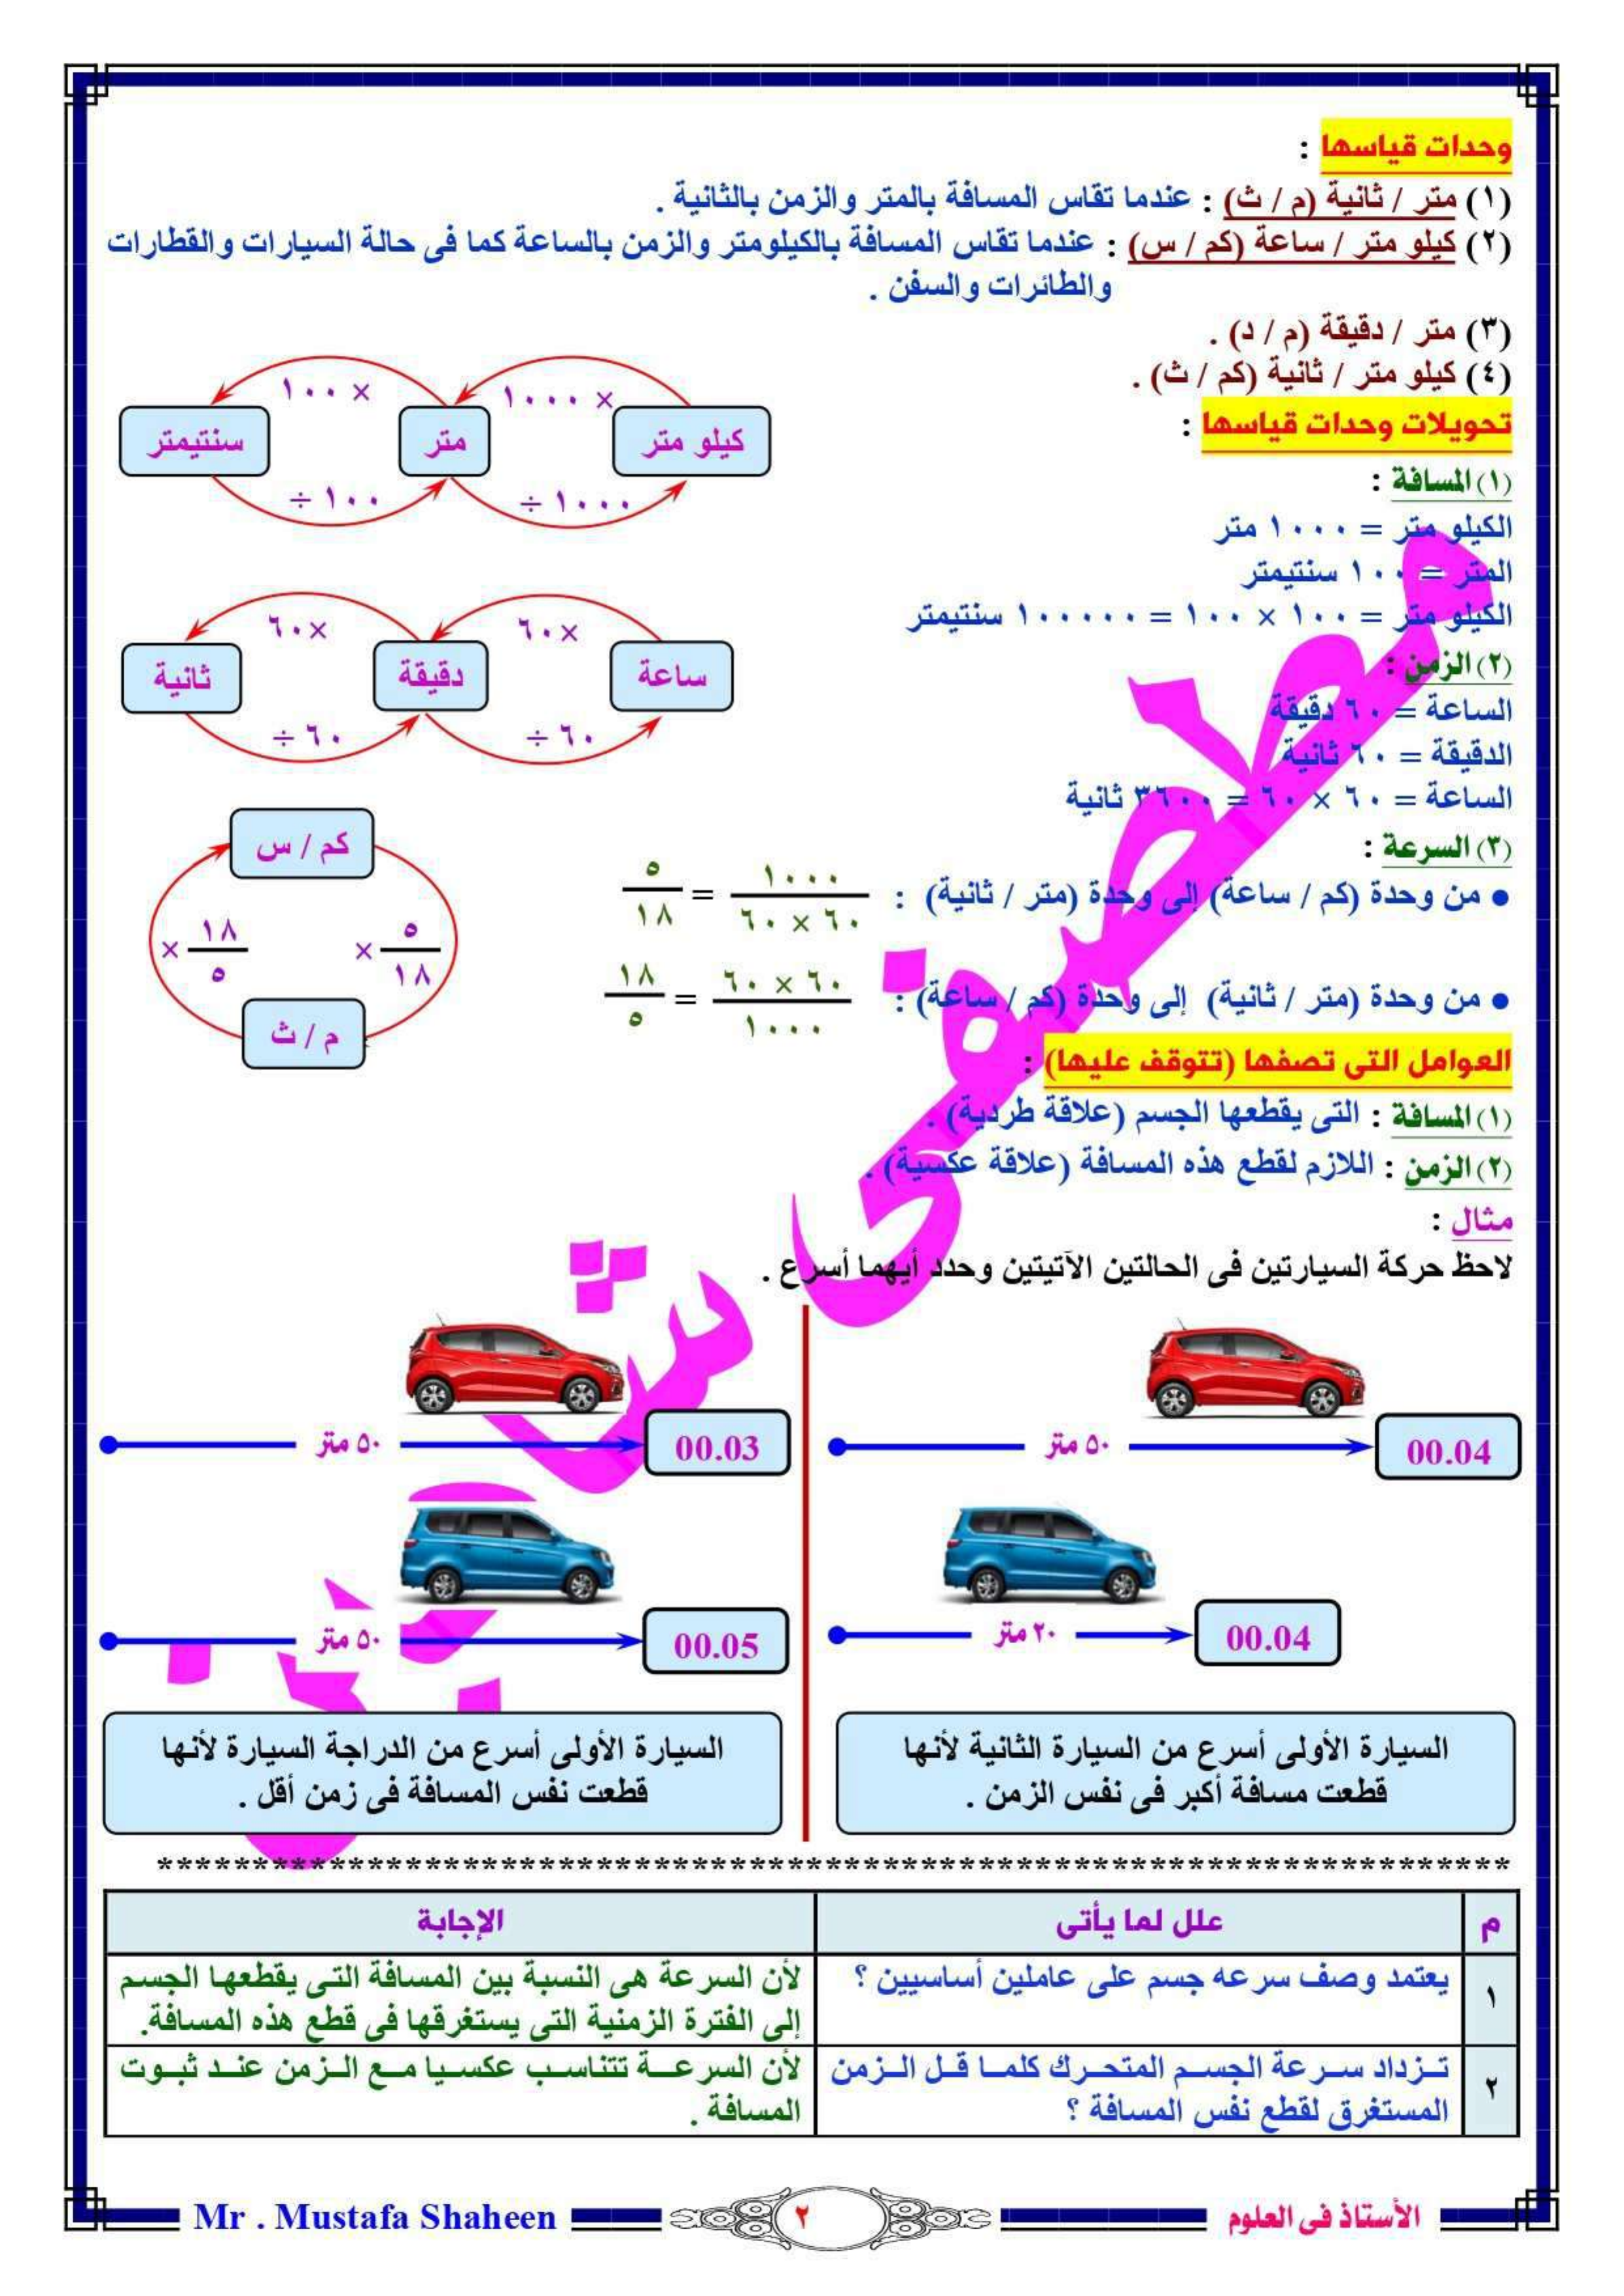 وحدات قياسها :
(١) متر / ثانية (م / ث) : عندما تقاس المسافة بالمتر والزمن بالثانية .
(٢) كيلو متر / ساعة (كم / س) : عندما تقاس المسافة بالكيلومتر والزمن بالساعة كما فى حالة السيارات والقطارات
والطائرات والسفن .
(٣) متر / دقيقة (م / د) .
(٤) كيلو متر / ثانية (كم / ث) .
تحويلات وحدات قياسها :
(١) المسافة :
الكيلو متر = ١٠٠٠ متر
المتر = ١٠٠ سنتيمتر
الكيلو متر = ١٠٠ × ١٠٠٠ = ١٠٠٠٠٠ سنتيمتر
× ١٠٠٠
× ١٠٠
كيلو متر
متر
سنتيمتر
١٠٠٠ ÷
١٠٠ ÷
(٢) الزمن :
الساعة = ٦٠ دقيقة
الدقيقة = ٦٠ ثانية
الساعة = ٦٠ × ٦٠ = ٣٦٠٠ ثانية
×٦٠
×٦٠
ساعة
دقيقة
ثانية
٦٠ ÷
٦٠ ÷
(٣) السرعة :
● من وحدة (كم / ساعة) إلى وحدة (متر / ثانية) : ١٠٠٠ / ٦٠ × ٦٠ = ٥ / ١٨
● من وحدة (متر / ثانية) إلى وحدة (كم / ساعة) : ٦٠ × ٦٠ / ١٠٠٠ = ١٨ / ٥
كم / س
× ٥ / ١٨
× ١٨ / ٥
م / ث
العوامل التى تصفها (تتوقف عليها) :
(١) المسافة : التى يقطعها الجسم (علاقة طردية) .
(٢) الزمن : اللازم لقطع هذه المسافة (علاقة عكسية) .
مثال :
لاحظ حركة السيارتين فى الحالتين الآتيتين وحدد أيهما أسرع .
٥٠ متر
00.04
٢٠ متر
00.04
السيارة الأولى أسرع من السيارة الثانية لأنها
قطعت مسافة أكبر فى نفس الزمن .
٥٠ متر
00.03
٥٠ متر
00.05
السيارة الأولى أسرع من الدراجة السيارة لأنها
قطعت نفس المسافة فى زمن أقل .
**********************************************************************
م
علل لما يأتى
الإجابة
١
يعتمد وصف سرعه جسم على عاملين أساسيين ؟
لأن السرعة هى النسبة بين المسافة التى يقطعها الجسم
إلى الفترة الزمنية التى يستغرقها فى قطع هذه المسافة.
٢
تـزداد سـرعة الجسـم المتحـرك كلمـا قـل الـزمن
المستغرق لقطع نفس المسافة ؟
لأن السرعـة تتناسـب عكسـيا مـع الـزمن عنـد ثبـوت
المسافة .
الأستاذ فى العلوم
٢
Mr . Mustafa Shaheen
مصطفى